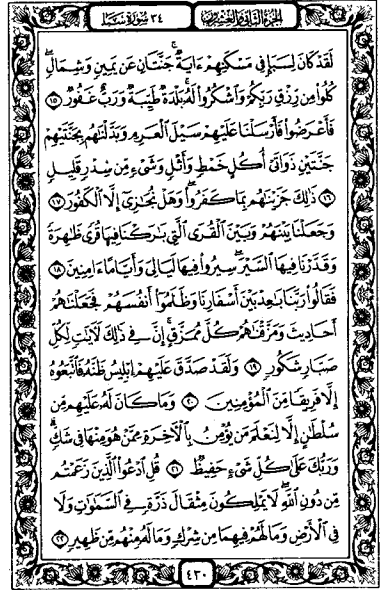 الجزء الثاني والعشرون ٣٤ سورة سبأ
لَقَدْ كَانَ لِسَبَإٍ فِي مَسْكَنِهِمْ ءَايَةٌ جَنَّتَانِ عَن يَمِينٍ وَشِمَالٍ
كُلُوا مِن رِّزْقِ رَبِّكُمْ وَاشْكُرُوا لَهُ بَلْدَةٌ طَيِّبَةٌ وَرَبٌّ غَفُورٌ ١٥
فَأَعْرَضُوا فَأَرْسَلْنَا عَلَيْهِمْ سَيْلَ الْعَرِمِ وَبَدَّلْنَاهُم بِجَنَّتَيْهِمْ
جَنَّتَيْنِ ذَوَاتَيْ أُكُلٍ خَمْطٍ وَأَثْلٍ وَشَيْءٍ مِّن سِدْرٍ قَلِيلٍ
١٦ ذَٰلِكَ جَزَيْنَاهُم بِمَا كَفَرُوا وَهَلْ نُجَازِي إِلَّا الْكَفُورَ ١٧
وَجَعَلْنَا بَيْنَهُمْ وَبَيْنَ الْقُرَى الَّتِي بَارَكْنَا فِيهَا قُرًى ظَاهِرَةً
وَقَدَّرْنَا فِيهَا السَّيْرَ سِيرُوا فِيهَا لَيَالِيَ وَأَيَّامًا ءَامِنِينَ ١٨
فَقَالُوا رَبَّنَا بَاعِدْ بَيْنَ أَسْفَارِنَا وَظَلَمُوا أَنفُسَهُمْ فَجَعَلْنَاهُمْ
أَحَادِيثَ وَمَزَّقْنَاهُمْ كُلَّ مُمَزَّقٍ إِنَّ فِي ذَٰلِكَ لَآيَاتٍ لِّكُلِّ
صَبَّارٍ شَكُورٍ ١٩ وَلَقَدْ صَدَّقَ عَلَيْهِمْ إِبْلِيسُ ظَنَّهُ فَاتَّبَعُوهُ
إِلَّا فَرِيقًا مِّنَ الْمُؤْمِنِينَ ٢٠ وَمَا كَانَ لَهُ عَلَيْهِم مِّن
سُلْطَانٍ إِلَّا لِنَعْلَمَ مَن يُؤْمِنُ بِالْآخِرَةِ مِمَّنْ هُوَ مِنْهَا فِي شَكٍّ
وَرَبُّكَ عَلَىٰ كُلِّ شَيْءٍ حَفِيظٌ ٢١ قُلِ ادْعُوا الَّذِينَ زَعَمْتُم
مِّن دُونِ اللَّهِ لَا يَمْلِكُونَ مِثْقَالَ ذَرَّةٍ فِي السَّمَاوَاتِ وَلَا
فِي الْأَرْضِ وَمَا لَهُمْ فِيهِمَا مِن شِرْكٍ وَمَا لَهُ مِنْهُم مِّن ظَهِيرٍ ٢٢
٤٣٠